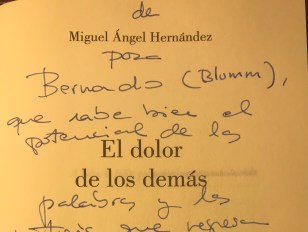 de
Miguel Ángel Hernández
para
Bernardo (Blumm),
que sabe bien el
potencial de las
El dolor
de los demás
palabras y las
que regresan